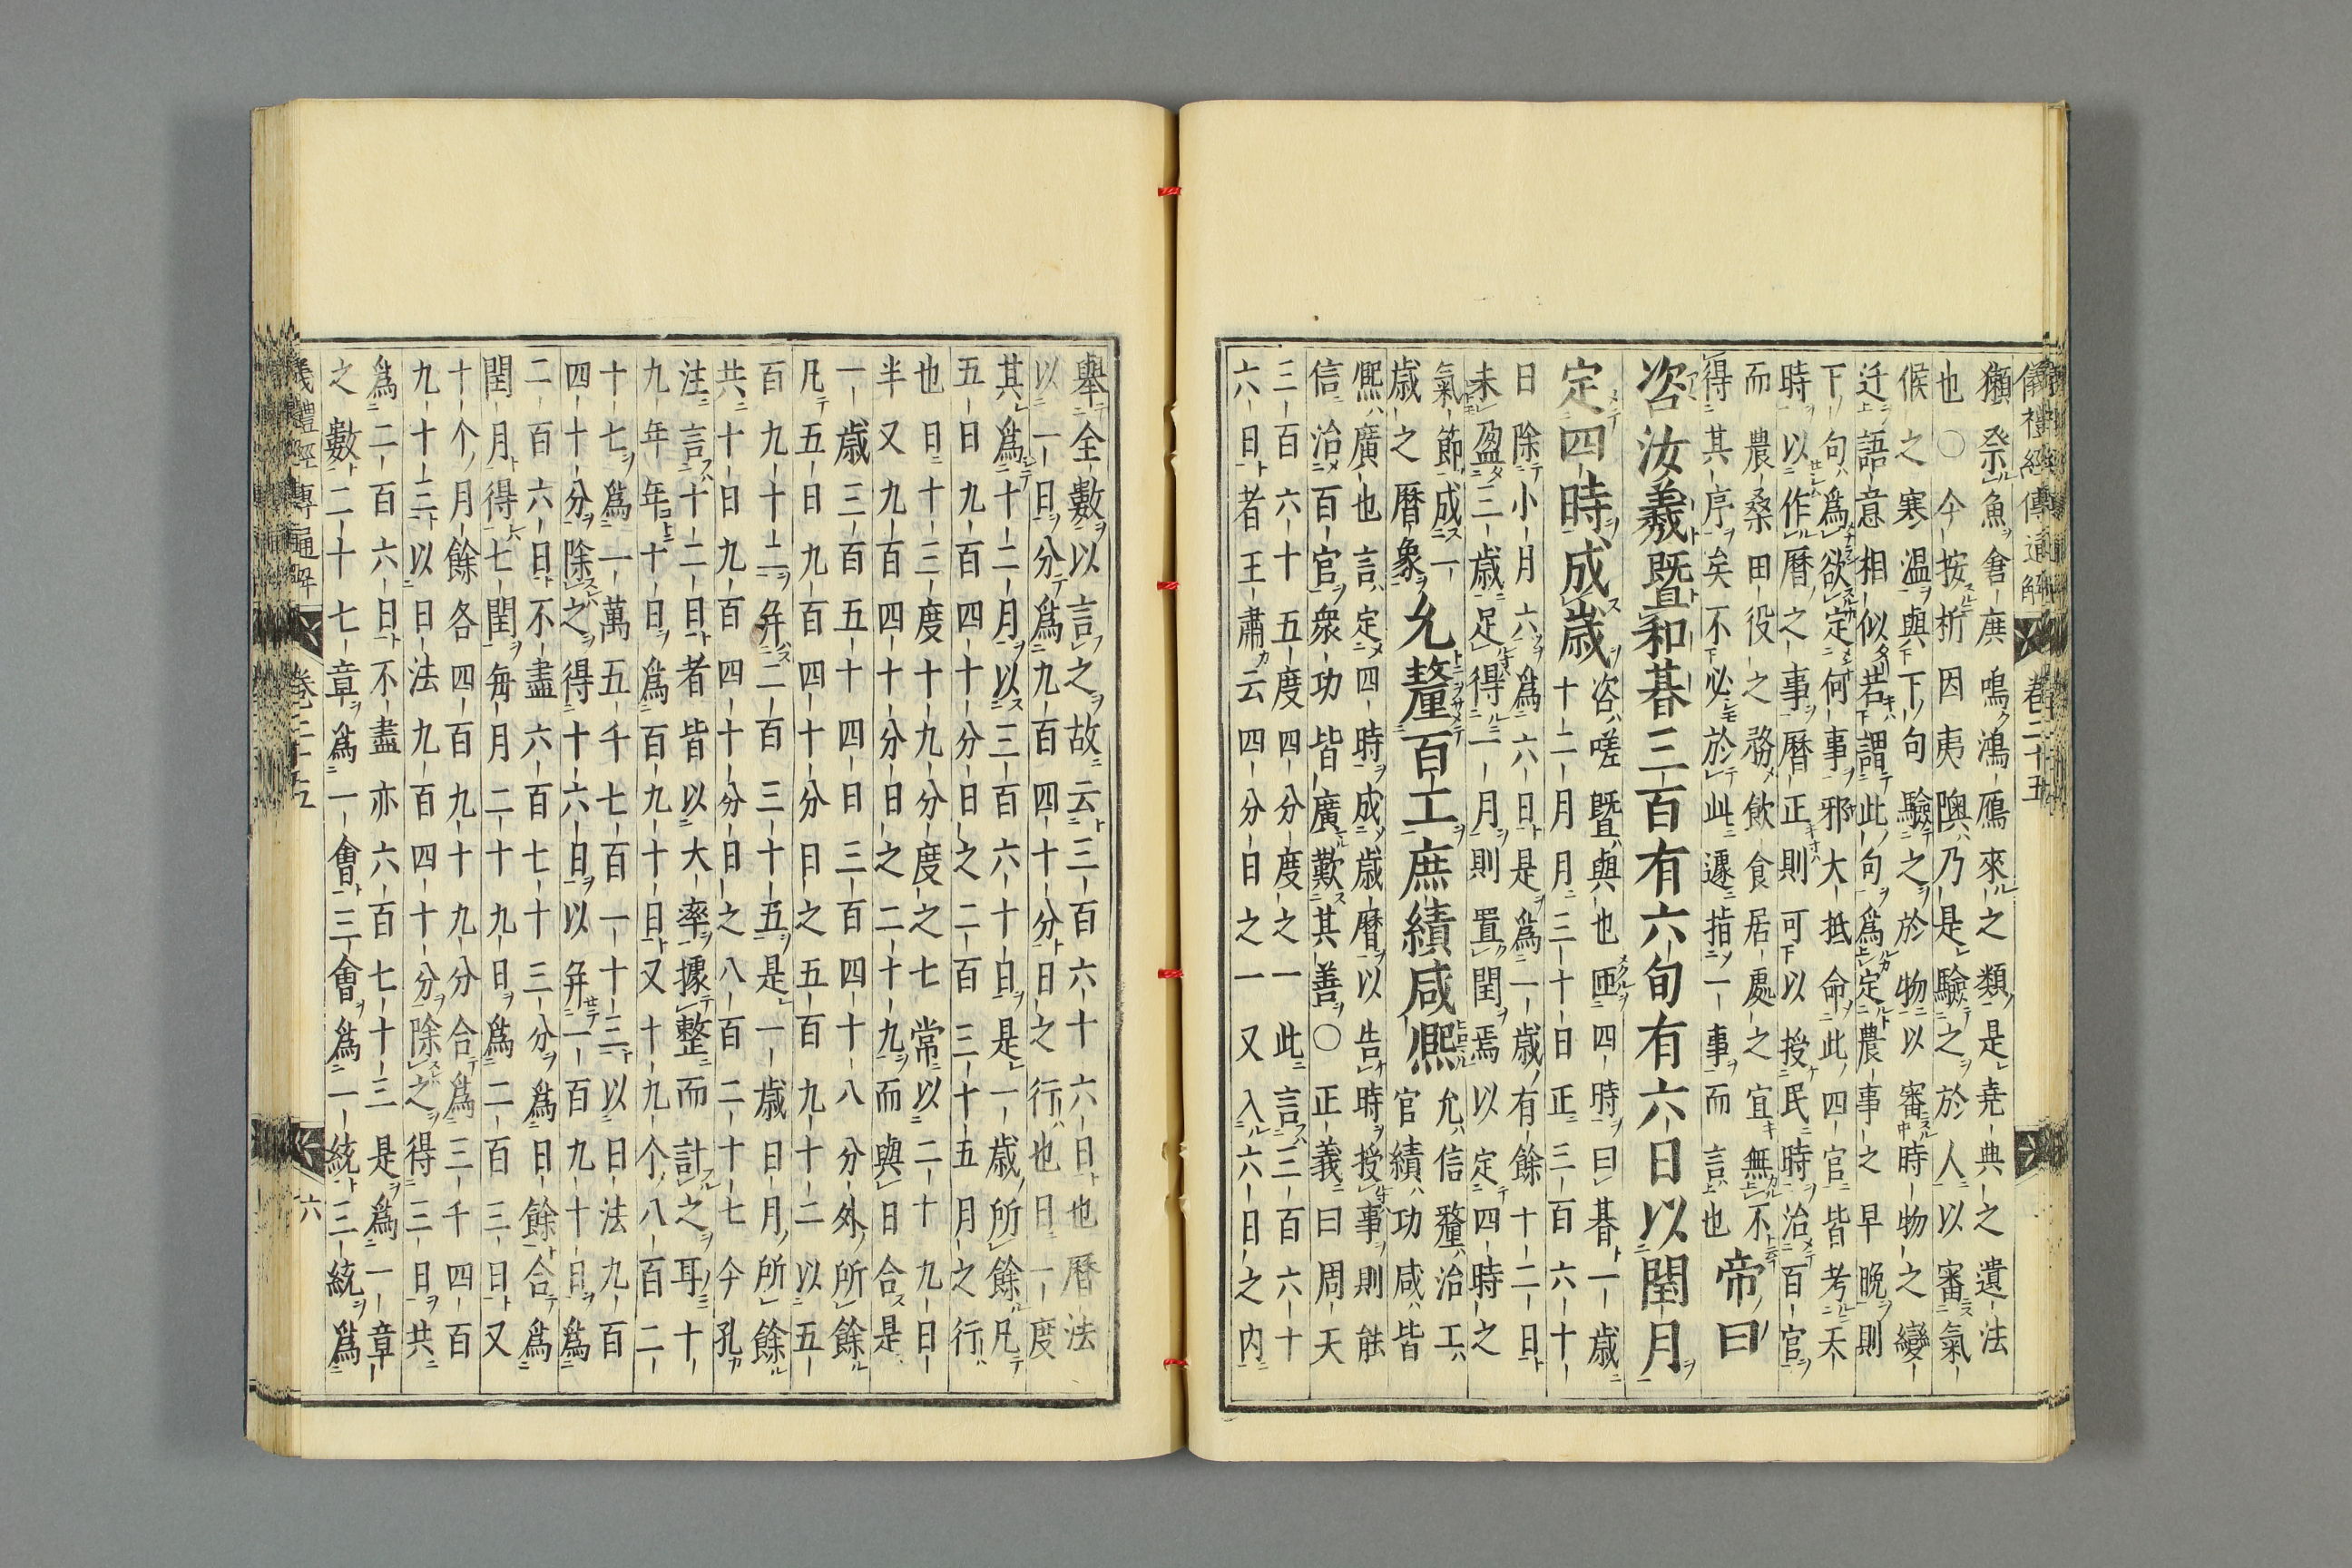 儀禮經傳通解 卷二十五
獺祭魚倉庚鳴鴻鴈來之類是堯典之遺法
也〇今按析因夷隩乃是驗之於人以審氣
候之寒溫與下句驗之於物以審時物之變
迁語意相似若謂此句爲定農事之早晚則
下句爲欲定何事邪大抵命此四官皆考天
時以作曆之事曆正則可以授民時治百官
而農桑田役之務飲食居處之宜無不
得其序矣不必於此遽指一事而言也
帝曰
咨汝羲暨和朞三百有六旬有六日以閏月
定四時成歲
咨嗟暨與也匝四時曰朞一歲
十二月月三十日正三百六十
日除小月六爲六日是爲一歲有餘十二日
未盈三歲足得一月則置閏焉以定四時之
氣節成一
歲之曆象
允釐百工庶績咸熙
允信釐治工
官績功咸皆
熙廣也言定四時成歲曆以告時授事則能
信治百官衆功皆廣歎其善〇正義曰周天
三百六十五度四分度之一此言三百六十
六日者王肅云四分日之一又入六日之內
舉全數以言之故云三百六十六日也曆法
以一日分爲九百四十分日之行也日一度
其爲十二月以三百六十日是一歲所餘凡
五日九百四十分日之二百三十五月之行
也日十三度十九分度之七常以二十九日
半又九百四十分日之二十九而與日合是
一歲三百五十四日三百四十八分外所餘
凡五日九百四十分日之五百九十二以五
百九十二并二百三十五是一歲日月所餘
共十日九百四十分日之八百二十七今孔
注言十二日者皆以大率據整而計之耳十
九年年十日爲百九十日又十九个八百二
十七爲一萬五千七百一十三以日法九百
四十分除之得十六日以并一百九十日爲
二百六日不盡六百七十三分爲日餘合爲
閏月得七閏每月二十九日爲二百三日又
十个月餘各四百九十九分合爲三千四百
九十三以日法九百四十分除之得三日共
爲二百六日不盡亦六百七十三是爲一章
之數二十七章爲一會三會爲一統三統爲
儀禮經傳通解 卷二十五 六